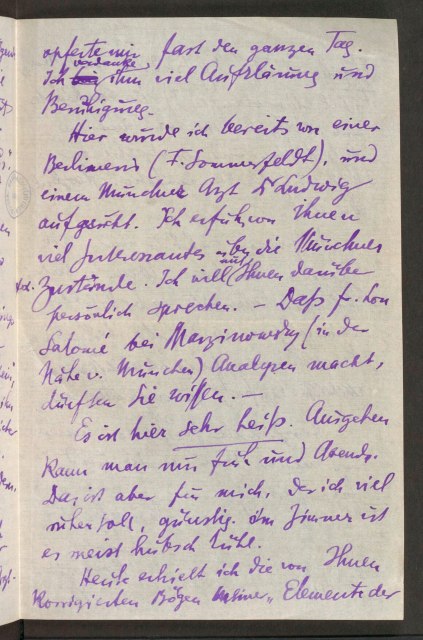 opferte mir fast den ganzen Tag.
Ich verdanke ihm viel Aufklärung und
Beruhigung.
Hier wurde ich bereits von einer
Berlinerin (F. Sommerfeldt), und
einem Münchner Arzt Dr Ludwig
aufgesucht. Ich erfuhr von Ihnen
viel Interessantes über die Münchner
Zustände. Ich will mit Ihnen darüber
persönlich sprechen. – Daß Fr. Lou
Salomé bei Marzinowsky (in der
Nähe v. München) Analysen macht,
dürften Sie wissen. –
Es ist hier sehr heiß. Ausgehen
kann man nur früh und Abends.
Das ist aber für mich, der ich viel
ruhen soll, günstig. Im Zimmer ist
es meist hübsch kühl.
Heute erhielt ich die von Ihnen
korrigierten Bögen meiner „Elemente der